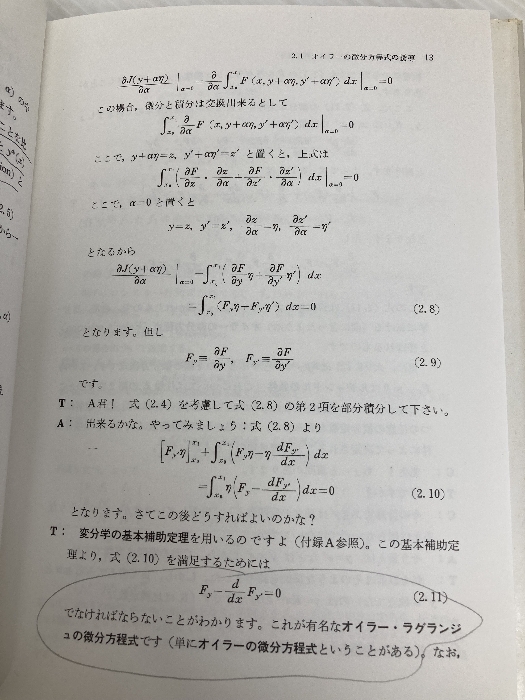 2.1 オイラーの微分方程式の誘導 13
∂J(y+αη)/∂α |α=0 = ∂/∂α ∫x₀^x₁ F (x, y+αη, y'+αη') dx |α=0 =0
この場合，微分と積分は交換出来るとして
∫x₀^x₁ ∂/∂α F (x, y+αη, y'+αη') dx |α=0 =0
ここで，y+αη=z, y'+αη'=z' と置くと，上式は
∫x₀^x₁ (∂F/∂z · ∂z/∂α + ∂F/∂z' · ∂z'/∂α) dx |α=0 =0
ここで，α=0 と置くと
y=z, y'=z', ∂z/∂α=η, ∂z'/∂α=η'
となるから
∂J(y+αη)/∂α |α=0 = ∫x₀^x₁ (∂F/∂y η + ∂F/∂y' η') dx
=∫x₀^x₁ (Fyη+Fy'η') dx=0 (2.8)
となります。但し
Fy≡ ∂F/∂y, Fy'≡ ∂F/∂y' (2.9)
です。
T： A君！ 式 (2.4) を考慮して式 (2.8) の第2項を部分積分して下さい。
A： 出来るかな。やってみましょう：式 (2.8) より
[Fy'η]x₀^x₁ + ∫x₀^x₁ (Fyη−η dFy'/dx) dx
=∫x₀^x₁ η(Fy− dFy'/dx) dx=0 (2.10)
となります。さてこの後どうすればよいのかな？
T： 変分学の基本補助定理を用いるのですよ（付録A参照）。この基本補助定
理より，式 (2.10) を満足するためには
Fy− d/dx Fy'=0 (2.11)
でなければならないことがわかります。これが有名なオイラー・ラグランジ
ュの微分方程式です（単にオイラーの微分方程式ということがある）。なお，